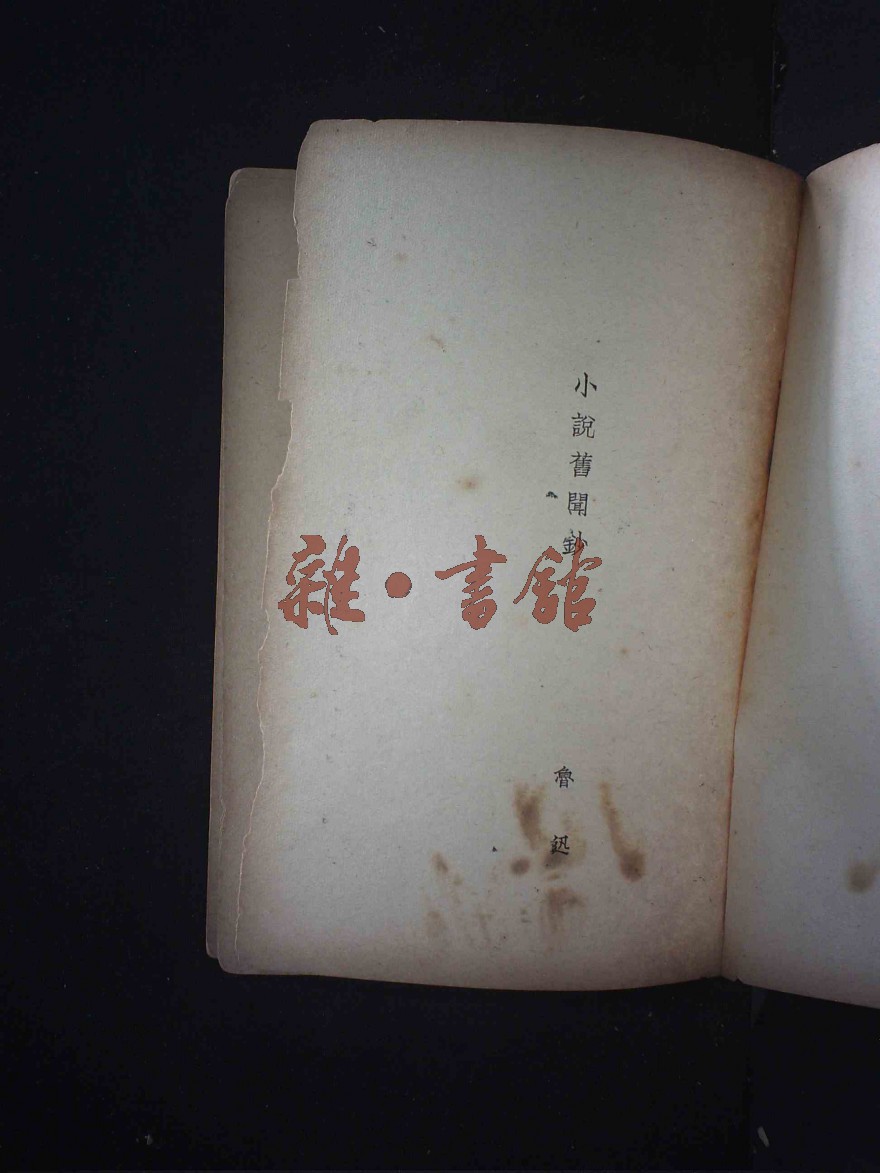 小說舊聞鈔
魯迅
雜·書館